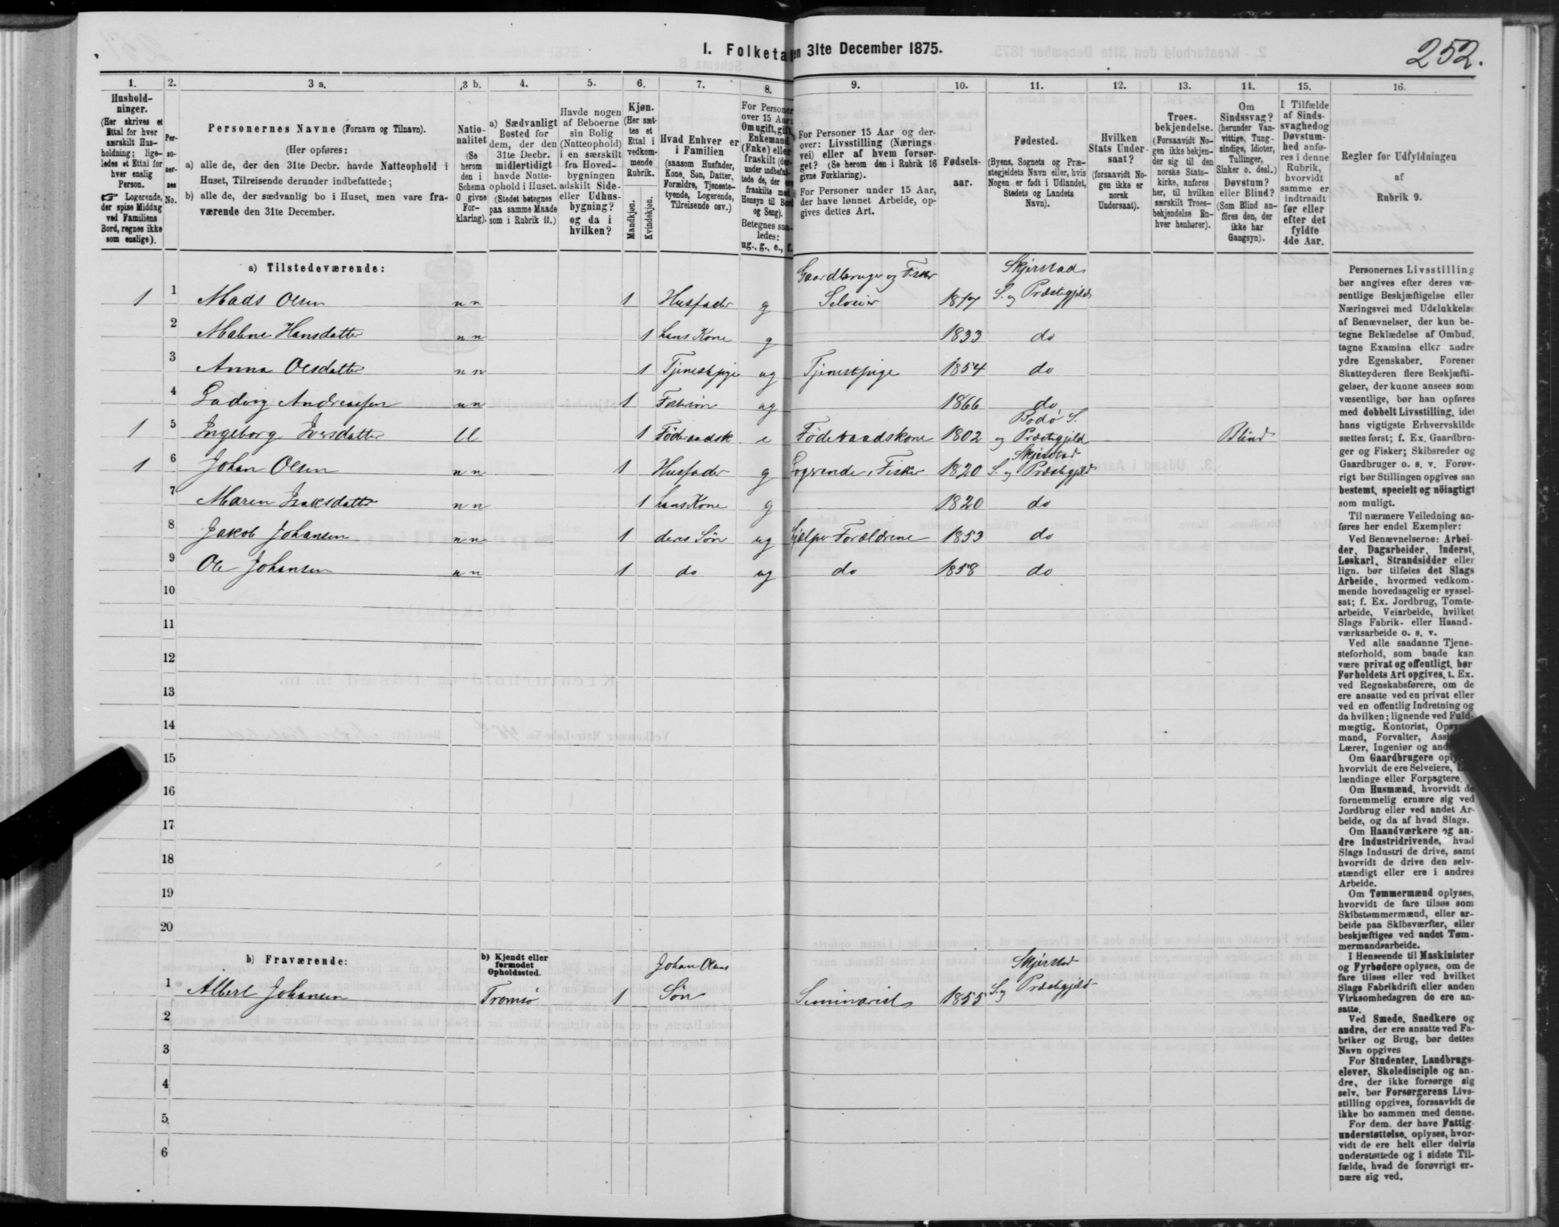 1. Folketa en 31te December 1875.
252.
1. 2. 3 a. 3 b. 4. 5. 6. 7. 8. 9. 10. 11. 12. 13. 14. 15. 16.
Hushold-
ninger.
(Her skrives et
Ettal for hver
særskilt Hus-
holdning; lige-
ledes et Ettal for
hver enslig
Person.
☞ Logerende,
der spise Middag
ved Familiens
Bord, regnes ikke
som enslige).
Per-
so-
ner-
nes
No.
Personernes Navne (Fornavn og Tilnavn).
(Her opføres:
a) alle de, der den 31te Decbr. havde Natteophold i
Huset, Tilreisende derunder indbefattede;
b) alle de, der sædvanlig bo i Huset, men vare fra-
værende den 31te December.
Natio-
nalitet
(Se
herom
den i
Schema
0 givne
For-
klaring).
a) Sædvanligt
Bosted for
dem, der den
31te Decbr.
midlertidigt
havde Natte-
ophold i Huset.
(Stedet betegnes
paa samme Maade
som i Rubrik 11.)
Havde nogen
af Beboerne
sin Bolig
(Natteophold)
i en særskilt
fra Hoved-
bygningen
adskilt Side-
eller Udhus-
bygning?
og da i
hvilken?
Kjøn.
(Her sæt-
tes et
Ettal i
vedkom-
mende
Rubrik.
Mandkjøn.
Kvindekjøn.
Hvad Enhver er
i Familien
(saasom Husfader,
Kone, Søn, Datter,
Forældre, Tjeneste-
tyende, Logerende,
Tilreisende osv.)
For Personer
over 15 Aar:
Om ugift, gift,
Enkemand
(Enke) eller
fraskilt (der-
under indbefat-
tede de, der ere
fraskilte med
Hensyn til Bord
og Seng).
Betegnes saa-
ledes:
ug., g., e., f.
For Personer 15 Aar og der-
over: Livsstilling (Nærings-
vei) eller af hvem forsør-
get? (Se herom den i Rubrik 16
givne Forklaring).
For Personer under 15 Aar,
der have lønnet Arbeide, op-
gives dettes Art.
Fødsels-
aar.
Fødested.
(Byens, Sognets og Præ-
stegjeldets Navn eller, hvis
Nogen er født i Udlandet,
Stedets og Landets
Navn).
Hvilken
Stats Under-
saat?
(forsaavidt No-
gen ikke er
norsk
Undersaat).
Troes-
bekjendelse.
(Forsaavidt No-
gen ikke bekjen-
der sig til den
norske Stats-
kirke, anføres
her, til hvilken
særskilt Troes-
bekjendelse En-
hver henhører).
Om
Sindssvag?
(herunder Van-
vittige, Tung-
sindige, Idioter,
Tullinger,
Sinker o. desl.)
Døvstum?
eller Blind?
(Som Blind an-
føres den, der
ikke har
Gangsyn).
I Tilfælde
af Sinds-
svaghed og
Døvstum-
hed anfø-
res i denne
Rubrik,
hvorvidt
samme er
indtraadt
før eller
efter det
fyldte
4de Aar.
Regler for Udfyldningen
af
Rubrik 9.
a) Tilstedeværende:
Gaardbruger og Fisker Skjerstad
1 1 Mads Olsen n n 1 Husfader g Selveier 1817 S. og Præstegjeld
2 Malene Hansdatter n n 1 hans Kone g 1833 do
3 Anna Olsdatter n n 1 Tjenestpige ug Tjenestpige 1854 do
4 Ludvig Andreassen n n 1 ug 1866 do
Bodø S.
1 5 Ingeborg Iversdatter ll 1 Føderaadsk e Føderaadskone 1802 og Præstegjeld Blind
Skjerstad
1 6 Johan Olsen n n 1 Husfader g Logerende, Fisker 1820 S. og Præstegjeld
7 Maren Isaksdatter n n 1 hans Kone g 1820 do
8 Jakob Johansen n n 1 deres Søn ug hjelper Forældrene 1853 do
9 Ole Johansen n n 1 do ug do 1858 do
10
11
12
13
14
15
16
17
18
19
20
b) Fraværende:
b) Kjendt eller
formodet
Opholdssted.
Johan Olsens Skjerstad
1 Albert Johansen Tromsø 1 Søn Seminarist 1855 S. og Præstegjeld
2
3
4
5
6
Personernes Livsstilling
bør angives efter deres væ-
sentlige Beskjæftigelse eller
Næringsvei med Udelukkelse
af Benævnelser, der kun be-
tegne Beklædelse af Ombud,
tagne Examina eller andre
ydre Egenskaber. Forener
Skatteyderen flere Beskjæfti-
gelser, der kunne ansees som
væsentlige, bør han opføres
med dobbelt Livsstilling, idet
hans vigtigste Erhvervskilde
sættes først; f. Ex. Gaardbru-
ger og Fisker; Skibsreder og
Gaardbruger o. s. v. Forøv-
rigt bør Stillingen opgives saa
bestemt, specielt og nøiagtigt
som muligt.
Til nærmere Veiledning an-
føres her endel Exempler:
Ved Benævnelserne: Arbei-
der, Dagarbeider, Inderst,
Løskarl, Strandsidder eller
lign. bør tilføies det Slags
Arbeide, hvormed vedkom-
mende hovedsagelig er syssel-
sat; f. Ex. Jordbrug, Tomte-
arbeide, Veiarbeide, hvilket
Slags Fabrik- eller Haand-
værksarbeide o. s. v.
Ved alle saadanne Tjene-
steforhold, som baade kan
være privat og offentligt, bør
Forholdets Art opgives, t. Ex.
ved Regnskabsførere, om de
ere ansatte ved en privat eller
ved en offentlig Indretning og
da hvilken; lignende ved Fuld-
mægtig, Kontorist, Opsyns-
mand, Forvalter, Ass
Lærer, Ingeniør og and
Om Gaardbrugere oply
hvorvidt de ere Selveiere,
lændinge eller Forpagtere.
Om Husmænd, hvorvidt de
fornemmelig ernære sig ved
Jordbrug eller ved andet Ar-
beide, og da af hvad Slags.
Om Haandværkere og an-
dre Industridrivende, hvad
Slags Industri de drive, samt
hvorvidt de drive den selv-
stændigt eller ere i andres
Arbeide.
Om Tømmermænd oplyses,
hvorvidt de fare tilsøs som
Skibstømmermænd, eller ar-
beide paa Skibsværfter, eller
beskjæftiges ved andet Tøm-
mermandsarbeide.
I Henseende til Maskinister
og Fyrbødere oplyses, om de
fare tilsøs eller ved hvilket
Slags Fabrikdrift eller anden
Virksomhedsgren de ere an-
satte.
Ved Smede, Snedkere og
andre, der ere ansatte ved Fa-
briker og Brug, bør dettes
Navn opgives
For Studenter, Landbrugs-
elever, Skoledisciple og an-
dre, der ikke forsørge sig
selv, bør Forsørgerens Livs-
stilling opgives, forsaavidt de
ikke bo sammen med denne.
For dem, der have Fattig-
understøttelse, oplyses, hvor-
vidt de ere helt eller delvis
understøttede og i sidste Til-
fælde, hvad de forøvrigt er-
nære sig ved.